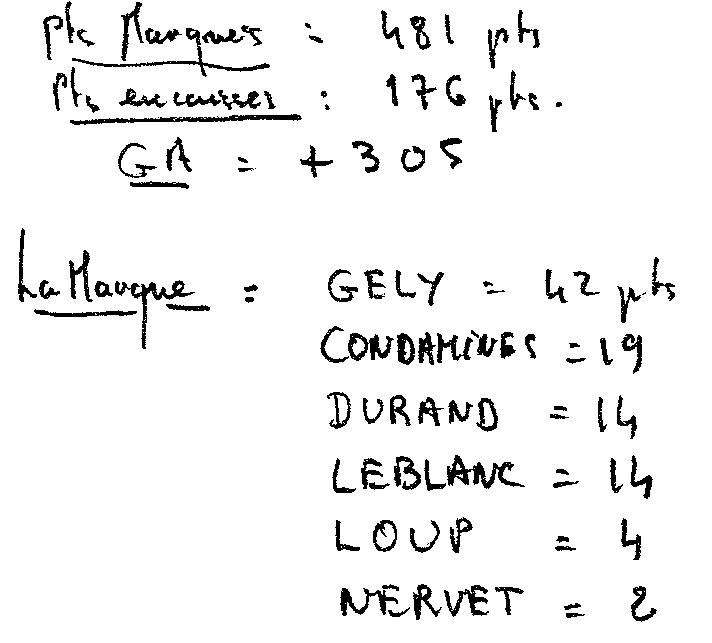 Pts Marqués : 481 pts
Pts encaisser : 176 pts.
GA = +305
La Marque = GELY = 42 pts
CONDAMINES = 19
DURAND = 14
LEBLANC = 14
LOUP = 4
NERVET = 2